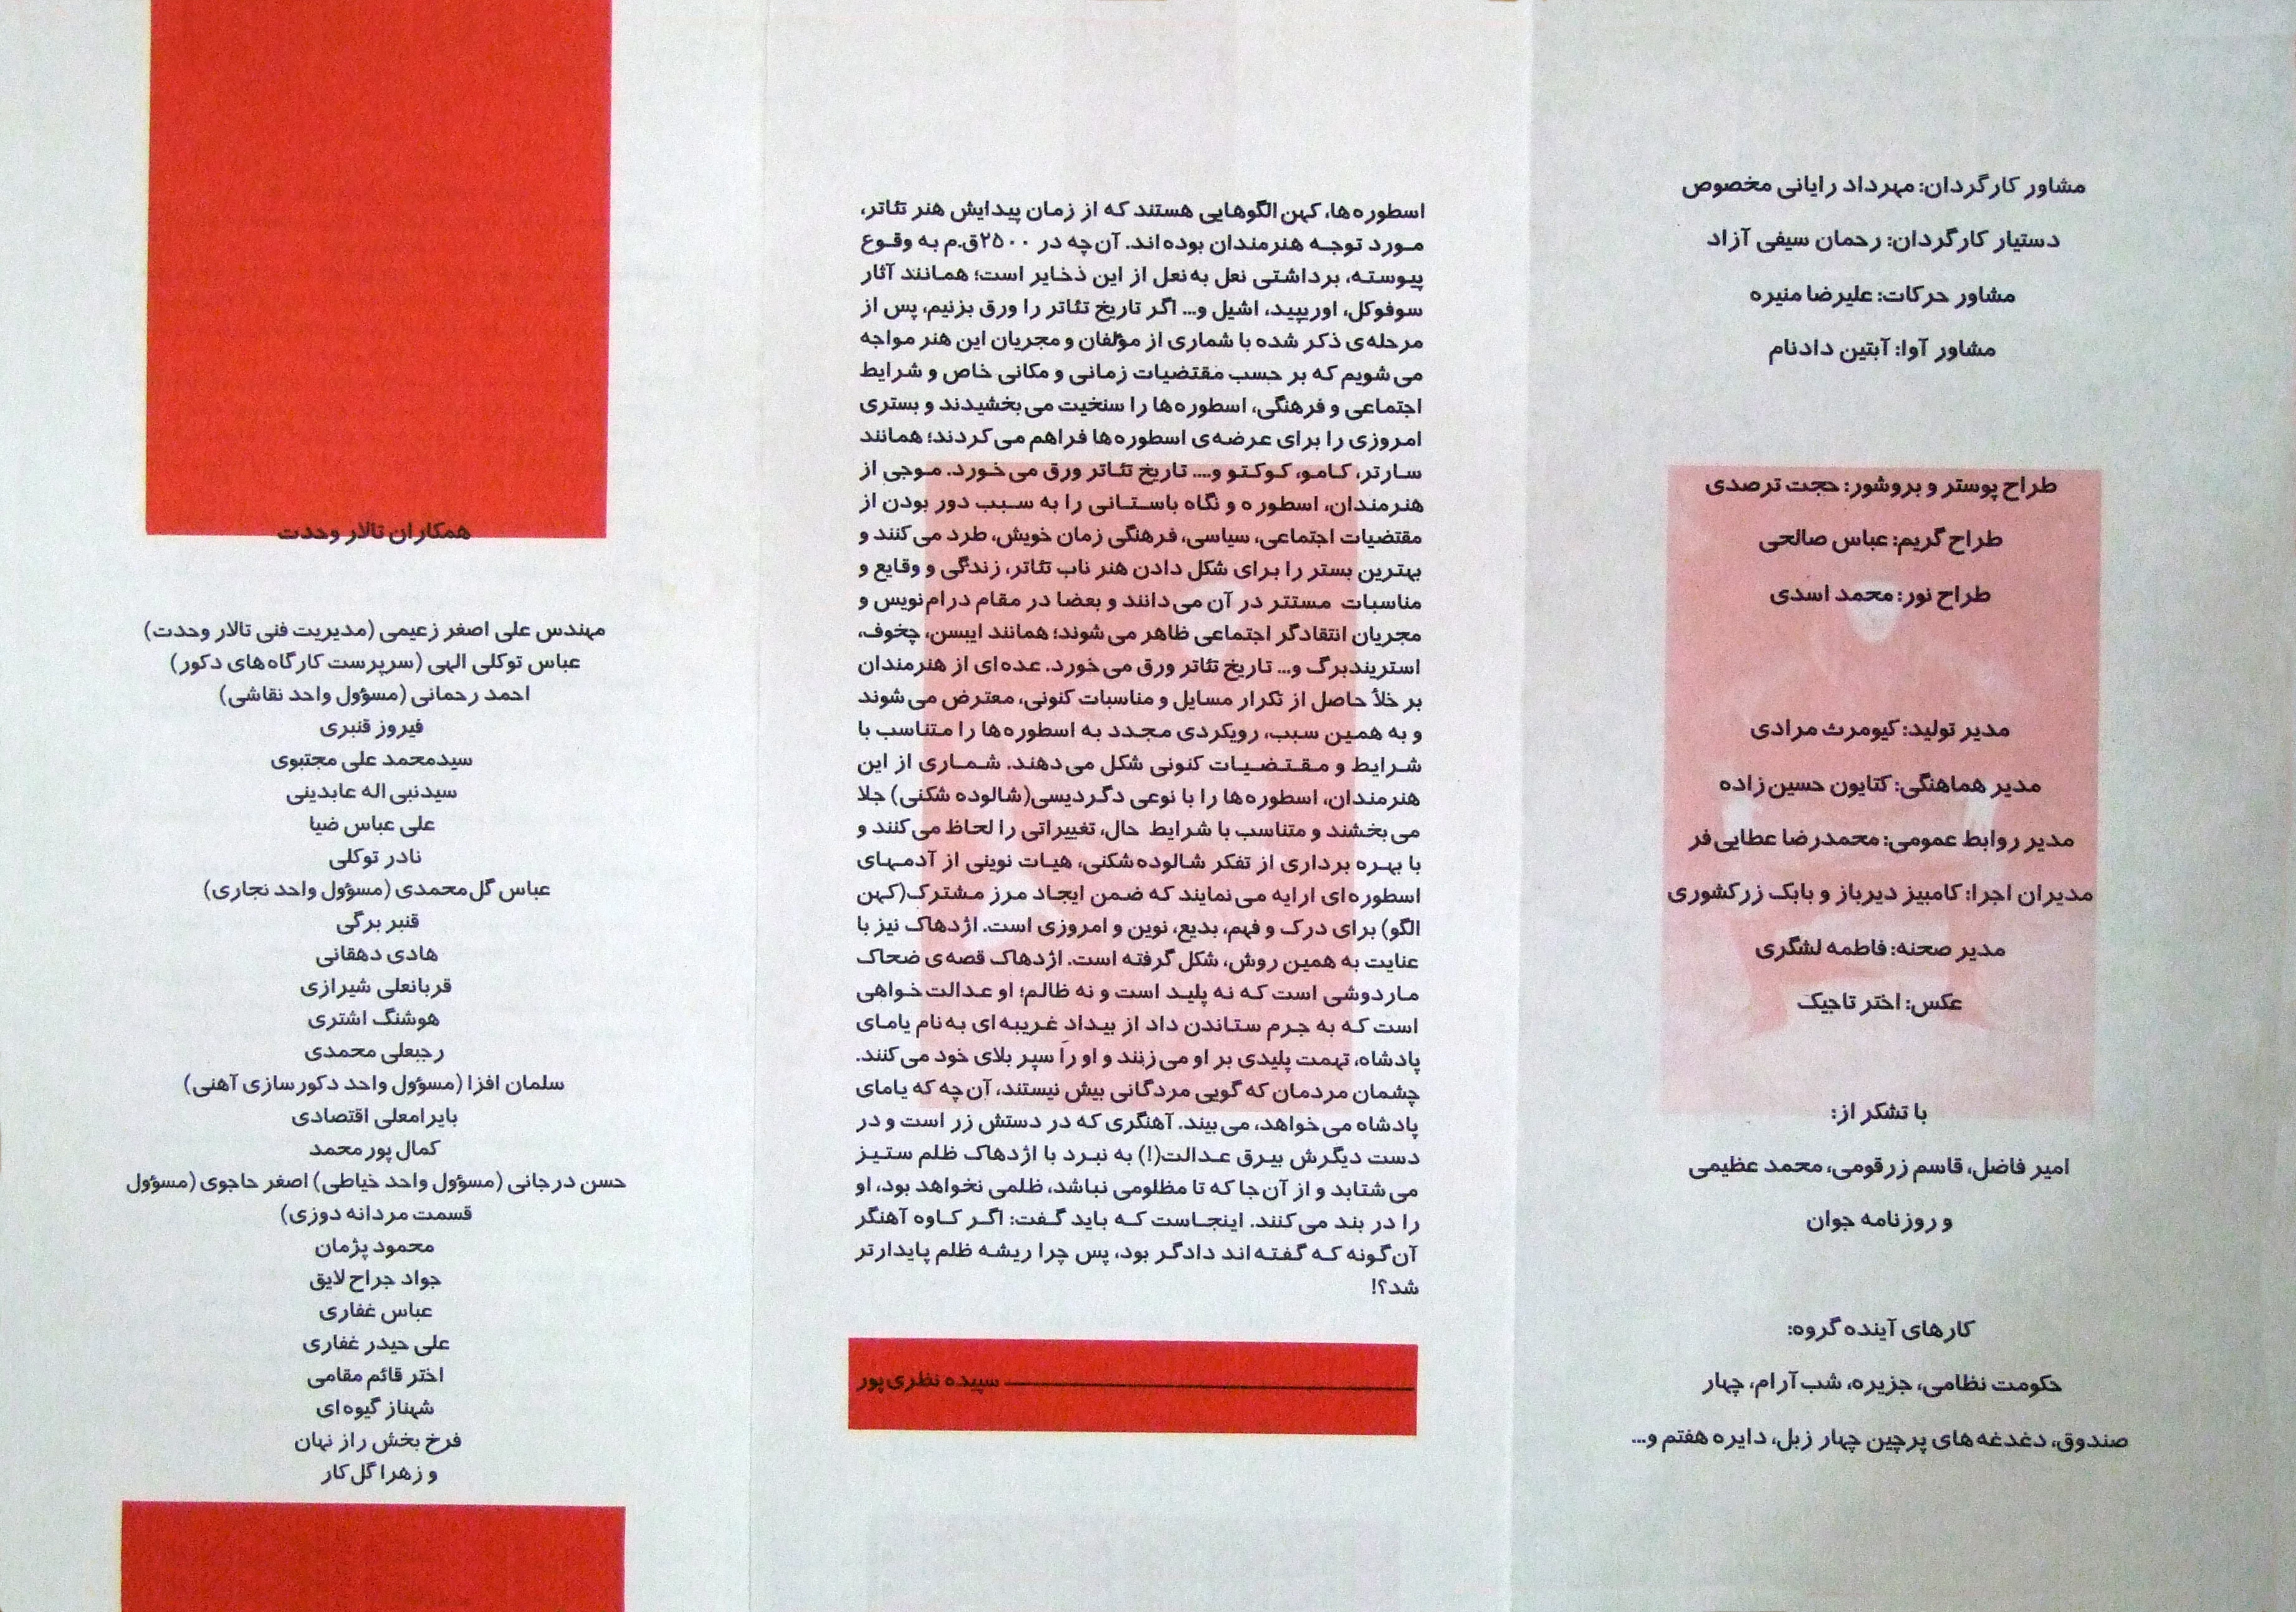 مشاور کارگردان: مهرداد رایانی مخصوص
دستیار کارگردان: رحمان سیفی آزاد
مشاور حرکات: علیرضا منیره
مشاور آوا: آبتین دادنام
طراح پوستر و بروشور: حجت ترصدی
طراح گریم: عباس صالحی
طراح نور: محمد اسدی
مدیر تولید: کیومرث مرادی
مدیر هماهنگی: کتایون حسین‌زاده
مدیر روابط عمومی: محمدرضا عطایی‌فر
مدیران اجرا: کامبیز دیرباز و بابک زرکشوری
مدیر صحنه: فاطمه لشگری
عکس: اختر تاجیک
با تشکر از:
امیر فاضل، قاسم زرقومی، محمد عظیمی
و روزنامه جوان
کارهای آینده گروه:
حکومت نظامی، جزیره، شب‌آرام، چهار
صندوق، دغدغه‌های پرچین چهار زبل، دایره هفتم و...
اسطوره‌ها، کهن‌الگوهایی هستند که از زمان پیدایش هنر تئاتر،
مورد توجه هنرمندان بوده‌اند. آن‌چه در ۲۵۰۰ق.م به وقوع
پیوسته، برداشتی نعل به‌نعل از این ذخایر است؛ همانند آثار
سوفوکل، اوریپید، اشیل و... اگر تاریخ تئاتر را ورق بزنیم، پس از
مرحله‌ی ذکر شده با شماری از مؤلفان و مجریان این هنر مواجه
می‌شویم که بر حسب مقتضیات زمانی و مکانی خاص و شرایط
اجتماعی و فرهنگی، اسطوره‌ها را سنخیت می‌بخشیدند و بستری
امروزی را برای عرضه‌ی اسطوره‌ها فراهم می‌کردند؛ همانند
سارتر، کامو، کوکتو و.... تاریخ تئاتر ورق می‌خورد. موجی از
هنرمندان، اسطوره و نگاه باستانی را به سبب دور بودن از
مقتضیات اجتماعی، سیاسی، فرهنگی زمان خویش، طرد می‌کنند و
بهترین بستر را برای شکل دادن هنر ناب تئاتر، زندگی و وقایع و
مناسبات مستتر در آن می‌دانند و بعضا در مقام درام‌نویس و
مجریان انتقادگر اجتماعی ظاهر می‌شوند؛ همانند ایبسن، چخوف،
استریندبرگ و... تاریخ تئاتر ورق می‌خورد. عده‌ای از هنرمندان
بر خلأ حاصل از تکرار مسایل و مناسبات کنونی، معترض می‌شوند
و به همین سبب، رویکردی مجدد به اسطوره‌ها را متناسب با
شرایط و مقتضیات کنونی شکل می‌دهند. شماری از این
هنرمندان، اسطوره‌ها را با نوعی دگردیسی(شالوده شکنی) جلا
می‌بخشند و متناسب با شرایط حال، تغییراتی را لحاظ می‌کنند و
با بهره برداری از تفکر شالوده‌شکنی، هیات نوینی از آدمهای
اسطوره‌ای ارایه می‌نمایند که ضمن ایجاد مرز مشترک(کهن
الگو) برای درک و فهم، بدیع، نوین و امروزی است. اژدهاک نیز با
عنایت به همین روش، شکل گرفته است. اژدهاک قصه‌ی ضحاک
ماردوشی است که نه پلید است و نه ظالم؛ او عدالت‌خواهی
است که به جرم ستاندن داد از بیداد غریبه‌ای به‌نام یامای
پادشاه، تهمت پلیدی بر او می‌زنند و او را سپر بلای خود می‌کنند.
چشمان مردمان که گویی مردگانی بیش نیستند، آن‌چه که یامای
پادشاه می‌خواهد، می‌بیند. آهنگری که در دستش زر است و در
دست دیگرش بیرق عدالت(!) به نبرد با اژدهاک ظلم ستیز
می‌شتابد و از آن‌جا که تا مظلومی نباشد، ظلمی نخواهد بود، او
را در بند می‌کنند. اینجاست که باید گفت: اگر کاوه آهنگر
آن‌گونه که گفته‌اند دادگر بود، پس چرا ریشه ظلم پایدارتر
شد؟!
سپیده نظری‌پور
همکاران تالار وحدت
مهندس علی اصغر زعیمی (مدیریت فنی تالار وحدت)
عباس توکلی الهی (سرپرست کارگاه‌های دکور)
احمد رحمانی (مسؤول واحد نقاشی)
فیروز قنبری
سیدمحمد علی مجتبوی
سیدنبی اله عابدینی
علی عباس ضیا
نادر توکلی
عباس گل‌محمدی (مسؤول واحد نجاری)
قنبر برگی
هادی دهقانی
قربانعلی شیرازی
هوشنگ اشتری
رجبعلی محمدی
سلمان افزا (مسؤول واحد دکورسازی آهنی)
بایرامعلی اقتصادی
کمال پورمحمد
حسن درجانی (مسؤول واحد خیاطی) اصغر حاجوی (مسؤول
قسمت مردانه دوزی)
محمود پژمان
جواد جراح لایق
عباس غفاری
علی حیدر غفاری
اختر قائم مقامی
شهناز گیوه‌ای
فرخ بخش راز نهان
و زهرا گل‌کار